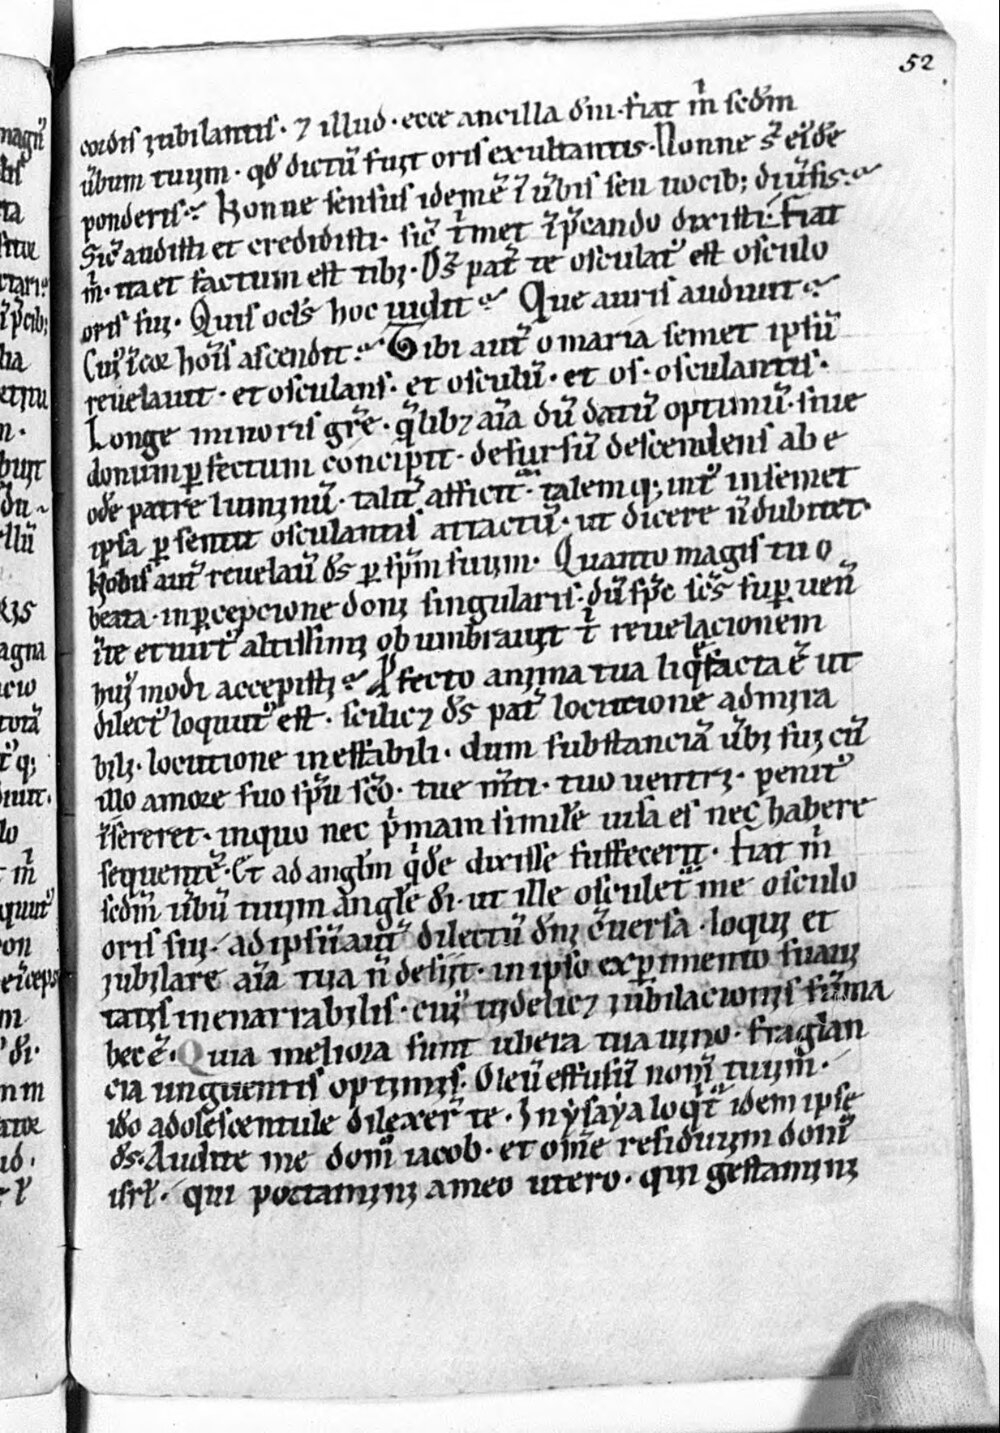 52
cordis iubilantis · ⁊ illud · ecce ancilla dn̄i · fiat m̄ scd̄m
ūbum tuum · qd̄ dictū fuit oris exultantis · Nonne sᷓ eiꝰdē
ponderis · Nonne sensus idem ē ī ūbis seu uocibꝫ diūsis
Sic̄ audisti et credidisti · sic̄ t̄met īp̄cando dixisti · fiat
m̄ · ita et factum est tibi · Ds̄ pat̄ te osculatꝰ est osculo
oris sui · Quis ocl̄s hoc uidit Que auris audiuit
Cuiꝰ ī cor hoīs ascendit Tibi aut̄ o maria semet ipsū
reuelauit · et osculans · et osculū · et os · osculantis ·
Longe minoris gr̄e · q̄libꝫ aīa dū datū optimū · siue
donum ꝑfectum concipit · desursū descendens ab e
odē patre luminū · talit̄ afficit · talemqꝫ intꝰ in semet
ipsa ꝑsentit osculantis attactū · ut dicere n̄ dubitet ·
Nobis aut̄ reuelauͥ ds̄ ꝑ sp̄m suum · Quanto magis tu o
beata · in ꝑcepcione doni singularis · dū sp̄c sc̄s suꝑuen̄
iīte et uirtꝰ altissimi obumbrauit t̄ reuelacionem
huiꝰmodi accepisti Ꝓfecto anima tua liq̄facta ē ut
dilectꝰ loquutꝰ est · scilicꝫ ds̄ pat̄ locutione admira
bili · locutione ineffabili · dum substanciā ūbi sui cū
illo amore suo sp̄u sc̄o · tue m̄ti · tuo uentri · penitꝰ
īsereret · in quo nec p̄mam similē uisa es nec habere
sequentē · Et ad angl̄m q̄dē dixisse suffecerit · fiat m̄
scd̄m ūbū tuum anglē dī · ut ille osculet̄ me osculo
oris sui · ad ipsū aut̄ dilectū dn̄i 9uersa · loqui et
iubilare aīa tua n̄ desiit · in ipso exꝑimento suaui
tatis inenarrabilis · cuiꝰ uidelicꝫ iubilacionis sūma
hec ē · Quia meliora sunt ubera tua uino · fraglan
cia unguentis optimis · Oleū effusū nom̄ tuum ·
ido adolescentule dilexer̄ te · In ysaya loqͥt̄ idem ipse
ds̄ · Audite me domꝰ iacob · et om̄e residuum domꝰ
isrl̄ · qui portamini a meo utero · qui gestamini